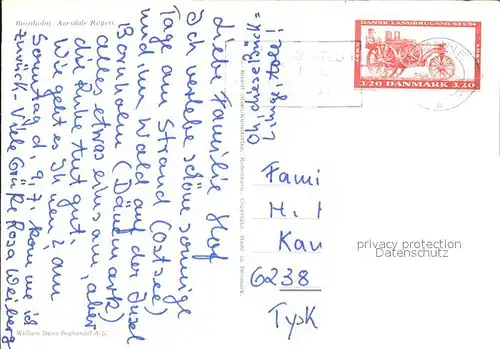 Bornholm. Aarsdale Røgeri
Liebe Familie Hof
Ich verlebe schöne sonnige
Tage am Strand (Ostsee)
und im Wald auf der Insel
Bornholm (Dänemark)
alles etwas einsam, aber
die Ruhe tut gut.
Wie geht es Ihnen? Am
Sonntag d. 9.7. komme ich
zurück – Viele Grüße Rosa Weiberg
William Dams Boghandel A/S.
Copyright. Made in Denmark.
DANSK LANDBRUGSMUSEUM
3.20 DANMARK 3.20
Fami
H. H
Kau
6238
Tysk
privacy protection
Datenschutz